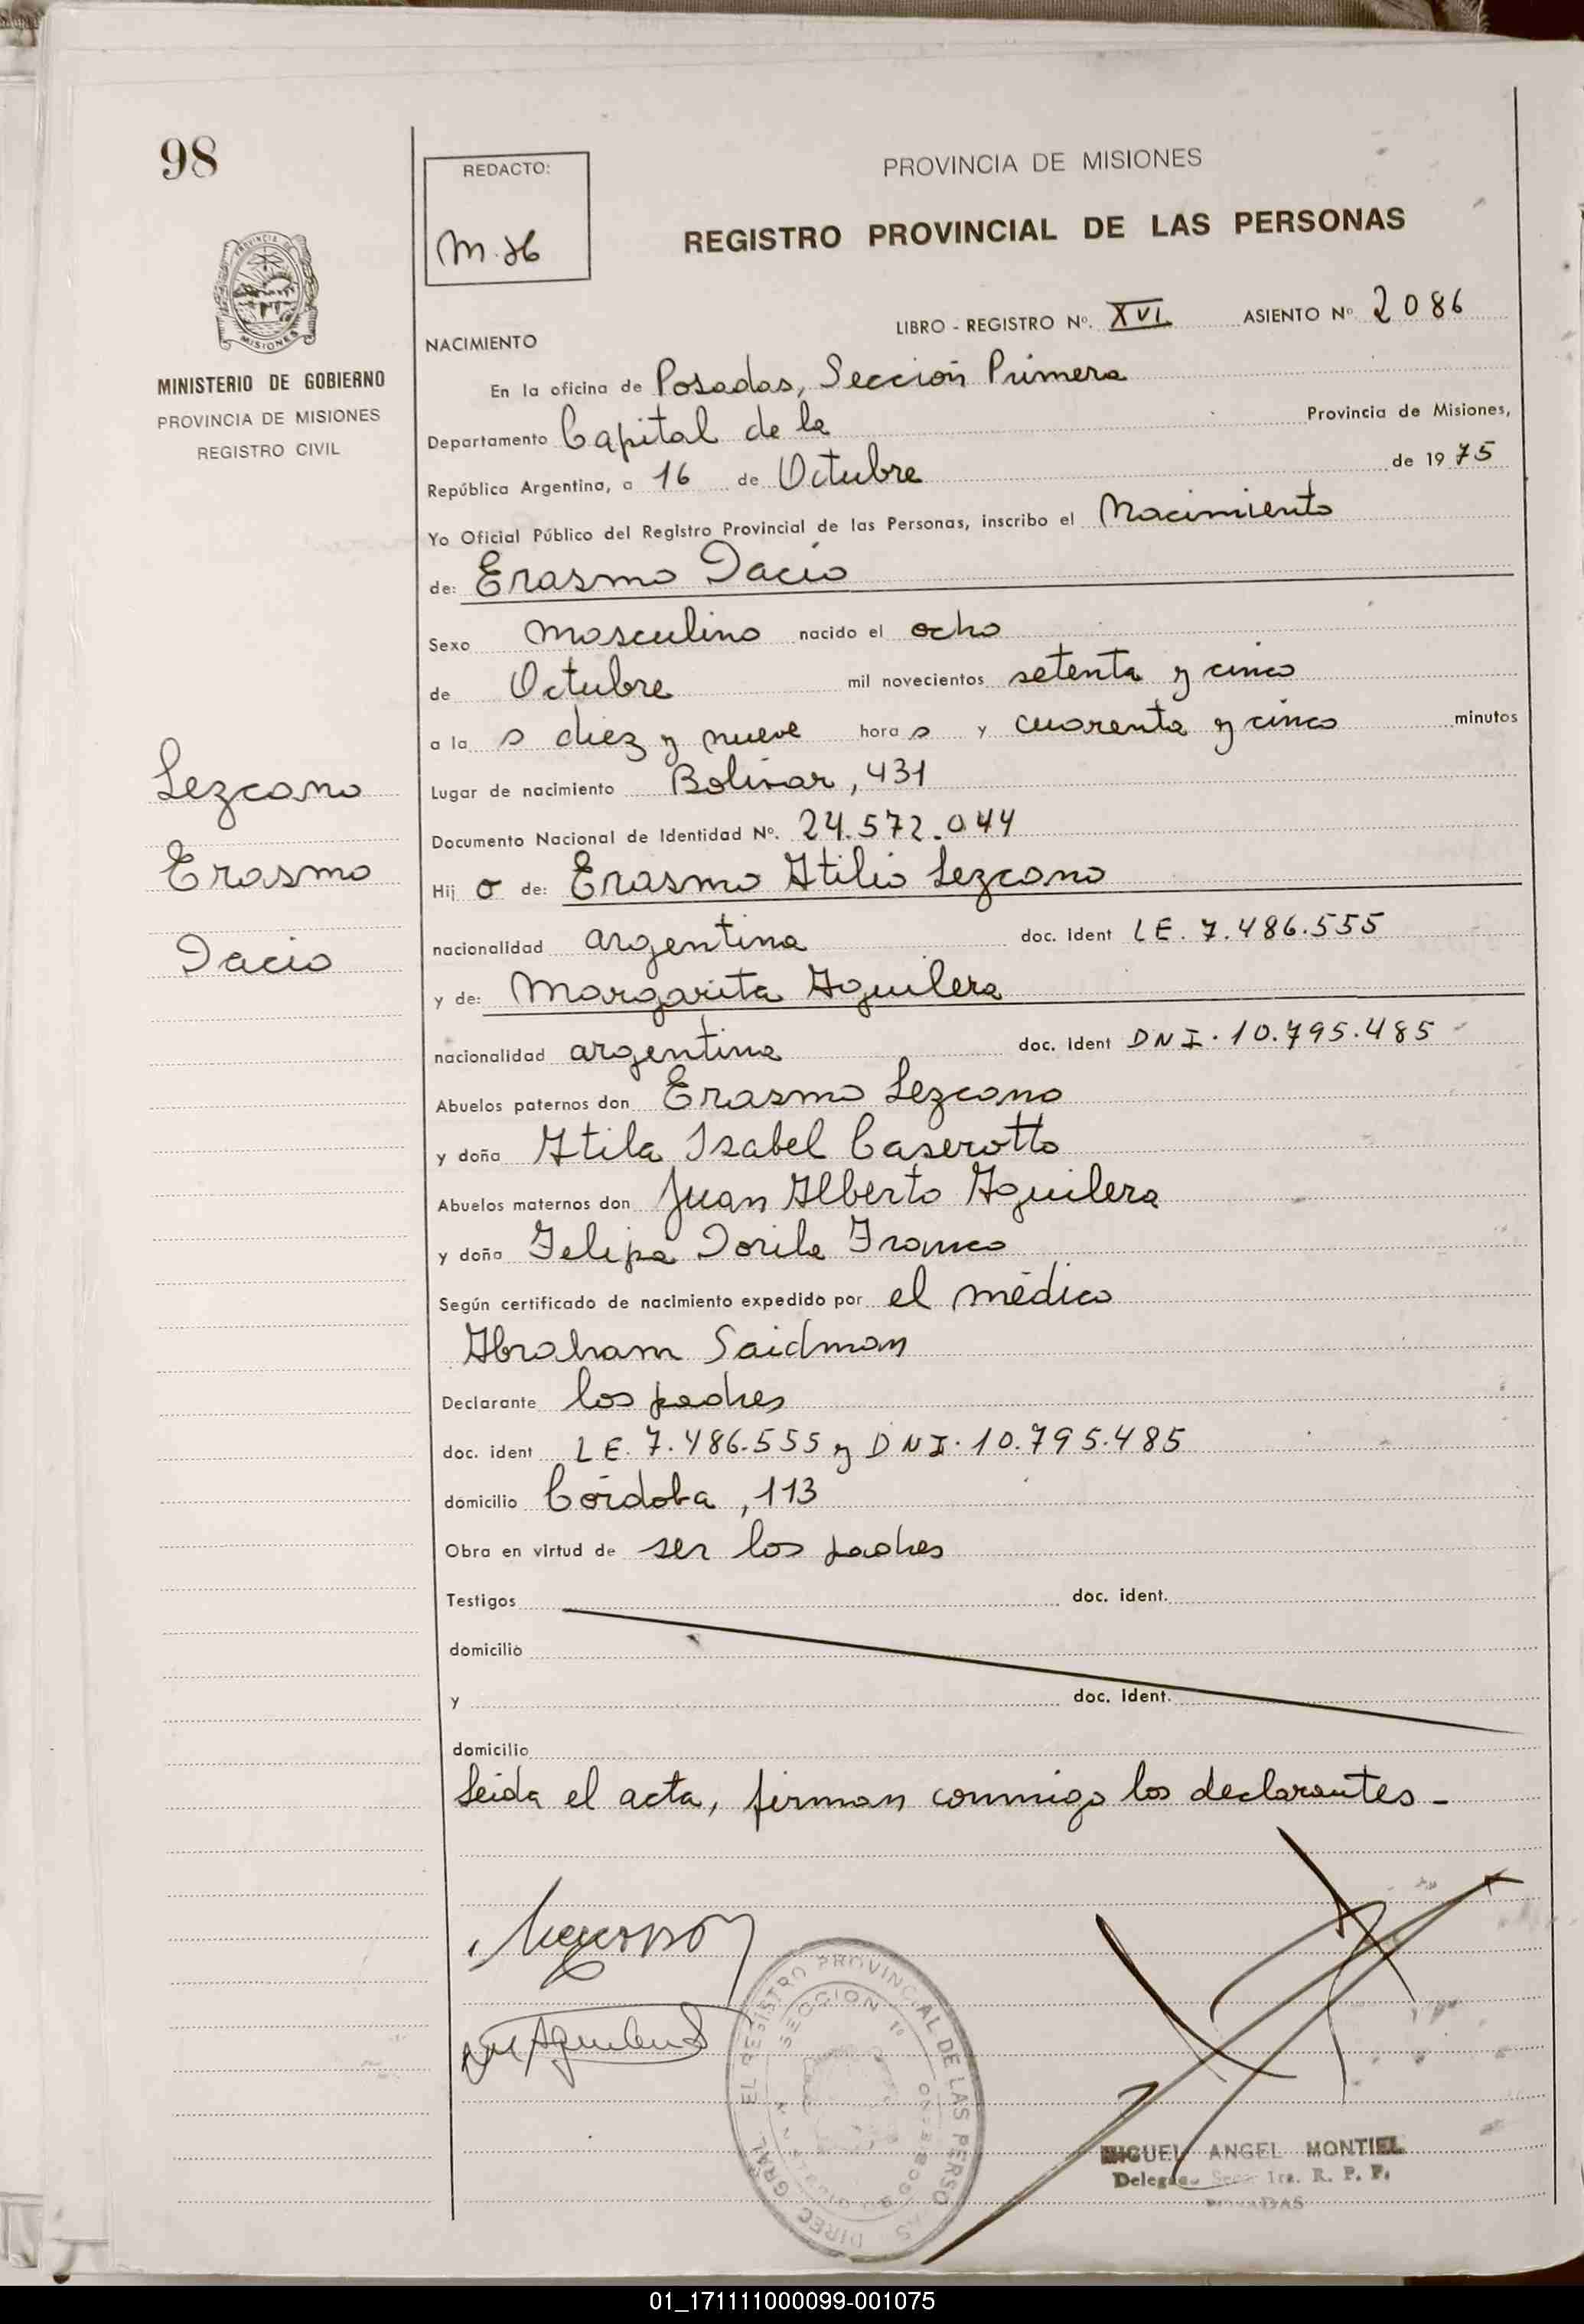 98
REDACTO:
PROVINCIA DE MISIONES
REGISTRO PROVINCIAL DE LAS PERSONAS
MISIONES
MINISTERIO DE GOBIERNO
PROVINCIA DE MISIONES
REGISTRO CIVIL
LIBRO - REGISTRO Nº. XVI ASIENTO Nº 2086
NACIMIENTO
En la oficina de Posadas, Sección Primera
Departamento Capital de la Provincia de Misiones,
República Argentina, a 16 de Octubre de 1975
Yo Oficial Público del Registro Provincial de las Personas, inscribo el Nacimiento
de: Erasmo Dacio
Sexo masculino nacido el ocho
de Octubre mil novecientos setenta y cinco
a la s diez y nueve hora s y cuarenta y cinco minutos
Lugar de nacimiento Bolívar, 431
Documento Nacional de Identidad Nº. 24.572.044
Hij o de: Erasmo Atilio Lezcano
nacionalidad argentina doc. ident LE. 7.486.555
y de: Margarita Aguilera
nacionalidad argentina doc. ident DNI. 10.795.485
Abuelos paternos don Erasmo Lezcano
y doña Atila Isabel Caserotto
Abuelos maternos don Juan Alberto Aguilera
y doña Felipa Dorila Franco
Según certificado de nacimiento expedido por el médico
Abraham Saidman
Declarante los padres
doc. ident LE. 7.486.555 y DNI. 10.795.485
domicilio Córdoba, 113
Obra en virtud de ser los padres
Testigos doc. ident.
domicilio
y doc. ident.
domicilio
Leida el acta, firman conmigo los declarantes.-
Lezcano
Erasmo
Dacio
DIREC. GRAL. EL REGISTRO PROVINCIAL DE LAS PERSONAS
SECCION 1º
MIGUEL ANGEL MONTIEL
Delegado Secc. 1ra. R. P. P.
POSADAS
01_171111000099-001075